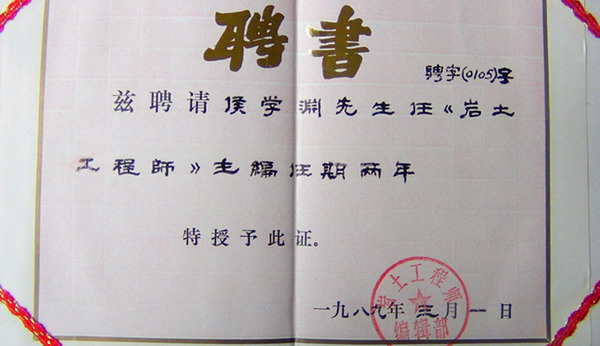 聘書
聘字(0105)号
兹聘请侯学渊先生任《岩土
工程師》主編任期两年
特授予此证。
一九八九年三月一日
岩土工程師
编辑部